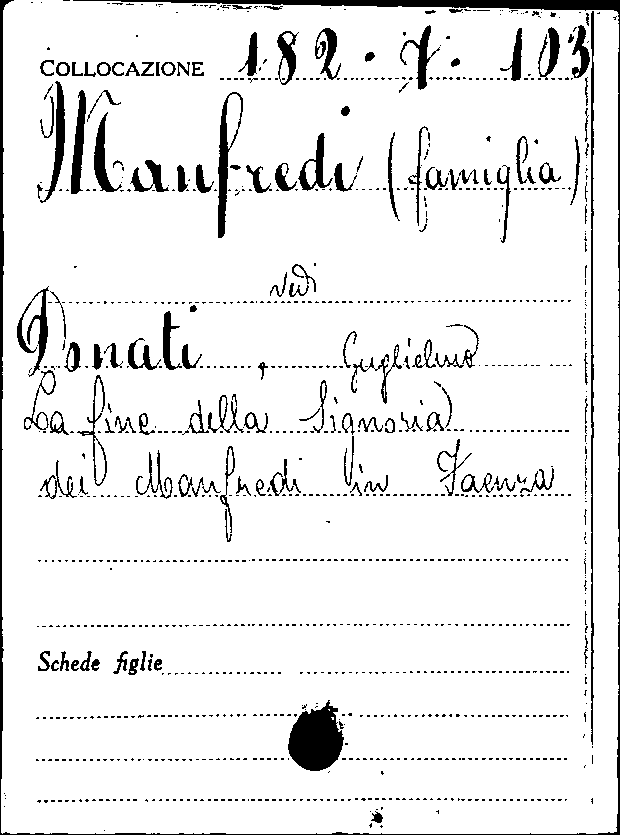 COLLOCAZIONE 182 . 7 . 103
Manfredi (famiglia)
vedi
Donati, Guglielmo
La fine della Signoria
dei Manfredi in Faenza
Schede figlie